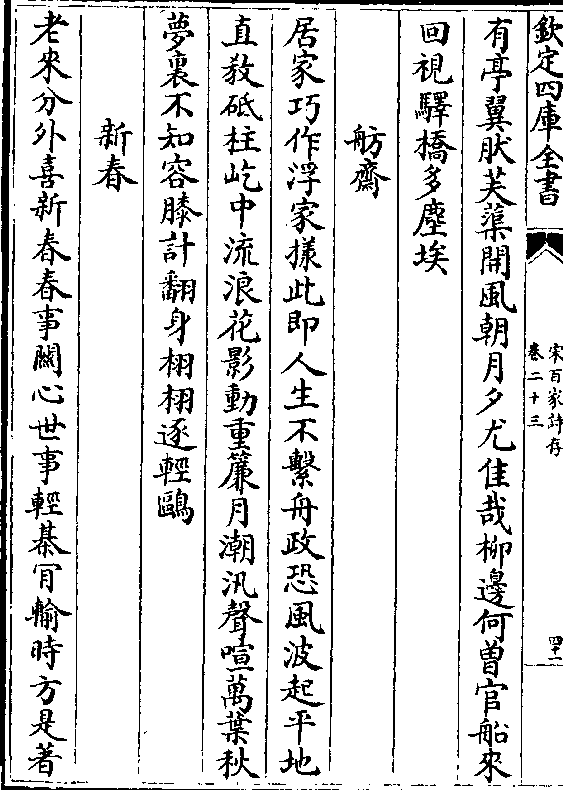 欽定四庫全書
宋百家詩存
卷二十三
四十一
有亭翼肰芙蕖開風朝月夕尤佳哉柳邊何曽官船來
回視驛橋多塵埃
舫齋
居家巧作浮家㨾此即人生不繫舟政恐風波起平地
直教砥柱屹中流浪花影動重簾月潮汛聲喧萬葉秋
夢裏不知容膝計翻身栩栩逐輕鷗
新春
老來分外喜新春春事關心世事輕棊肎輸時方是著